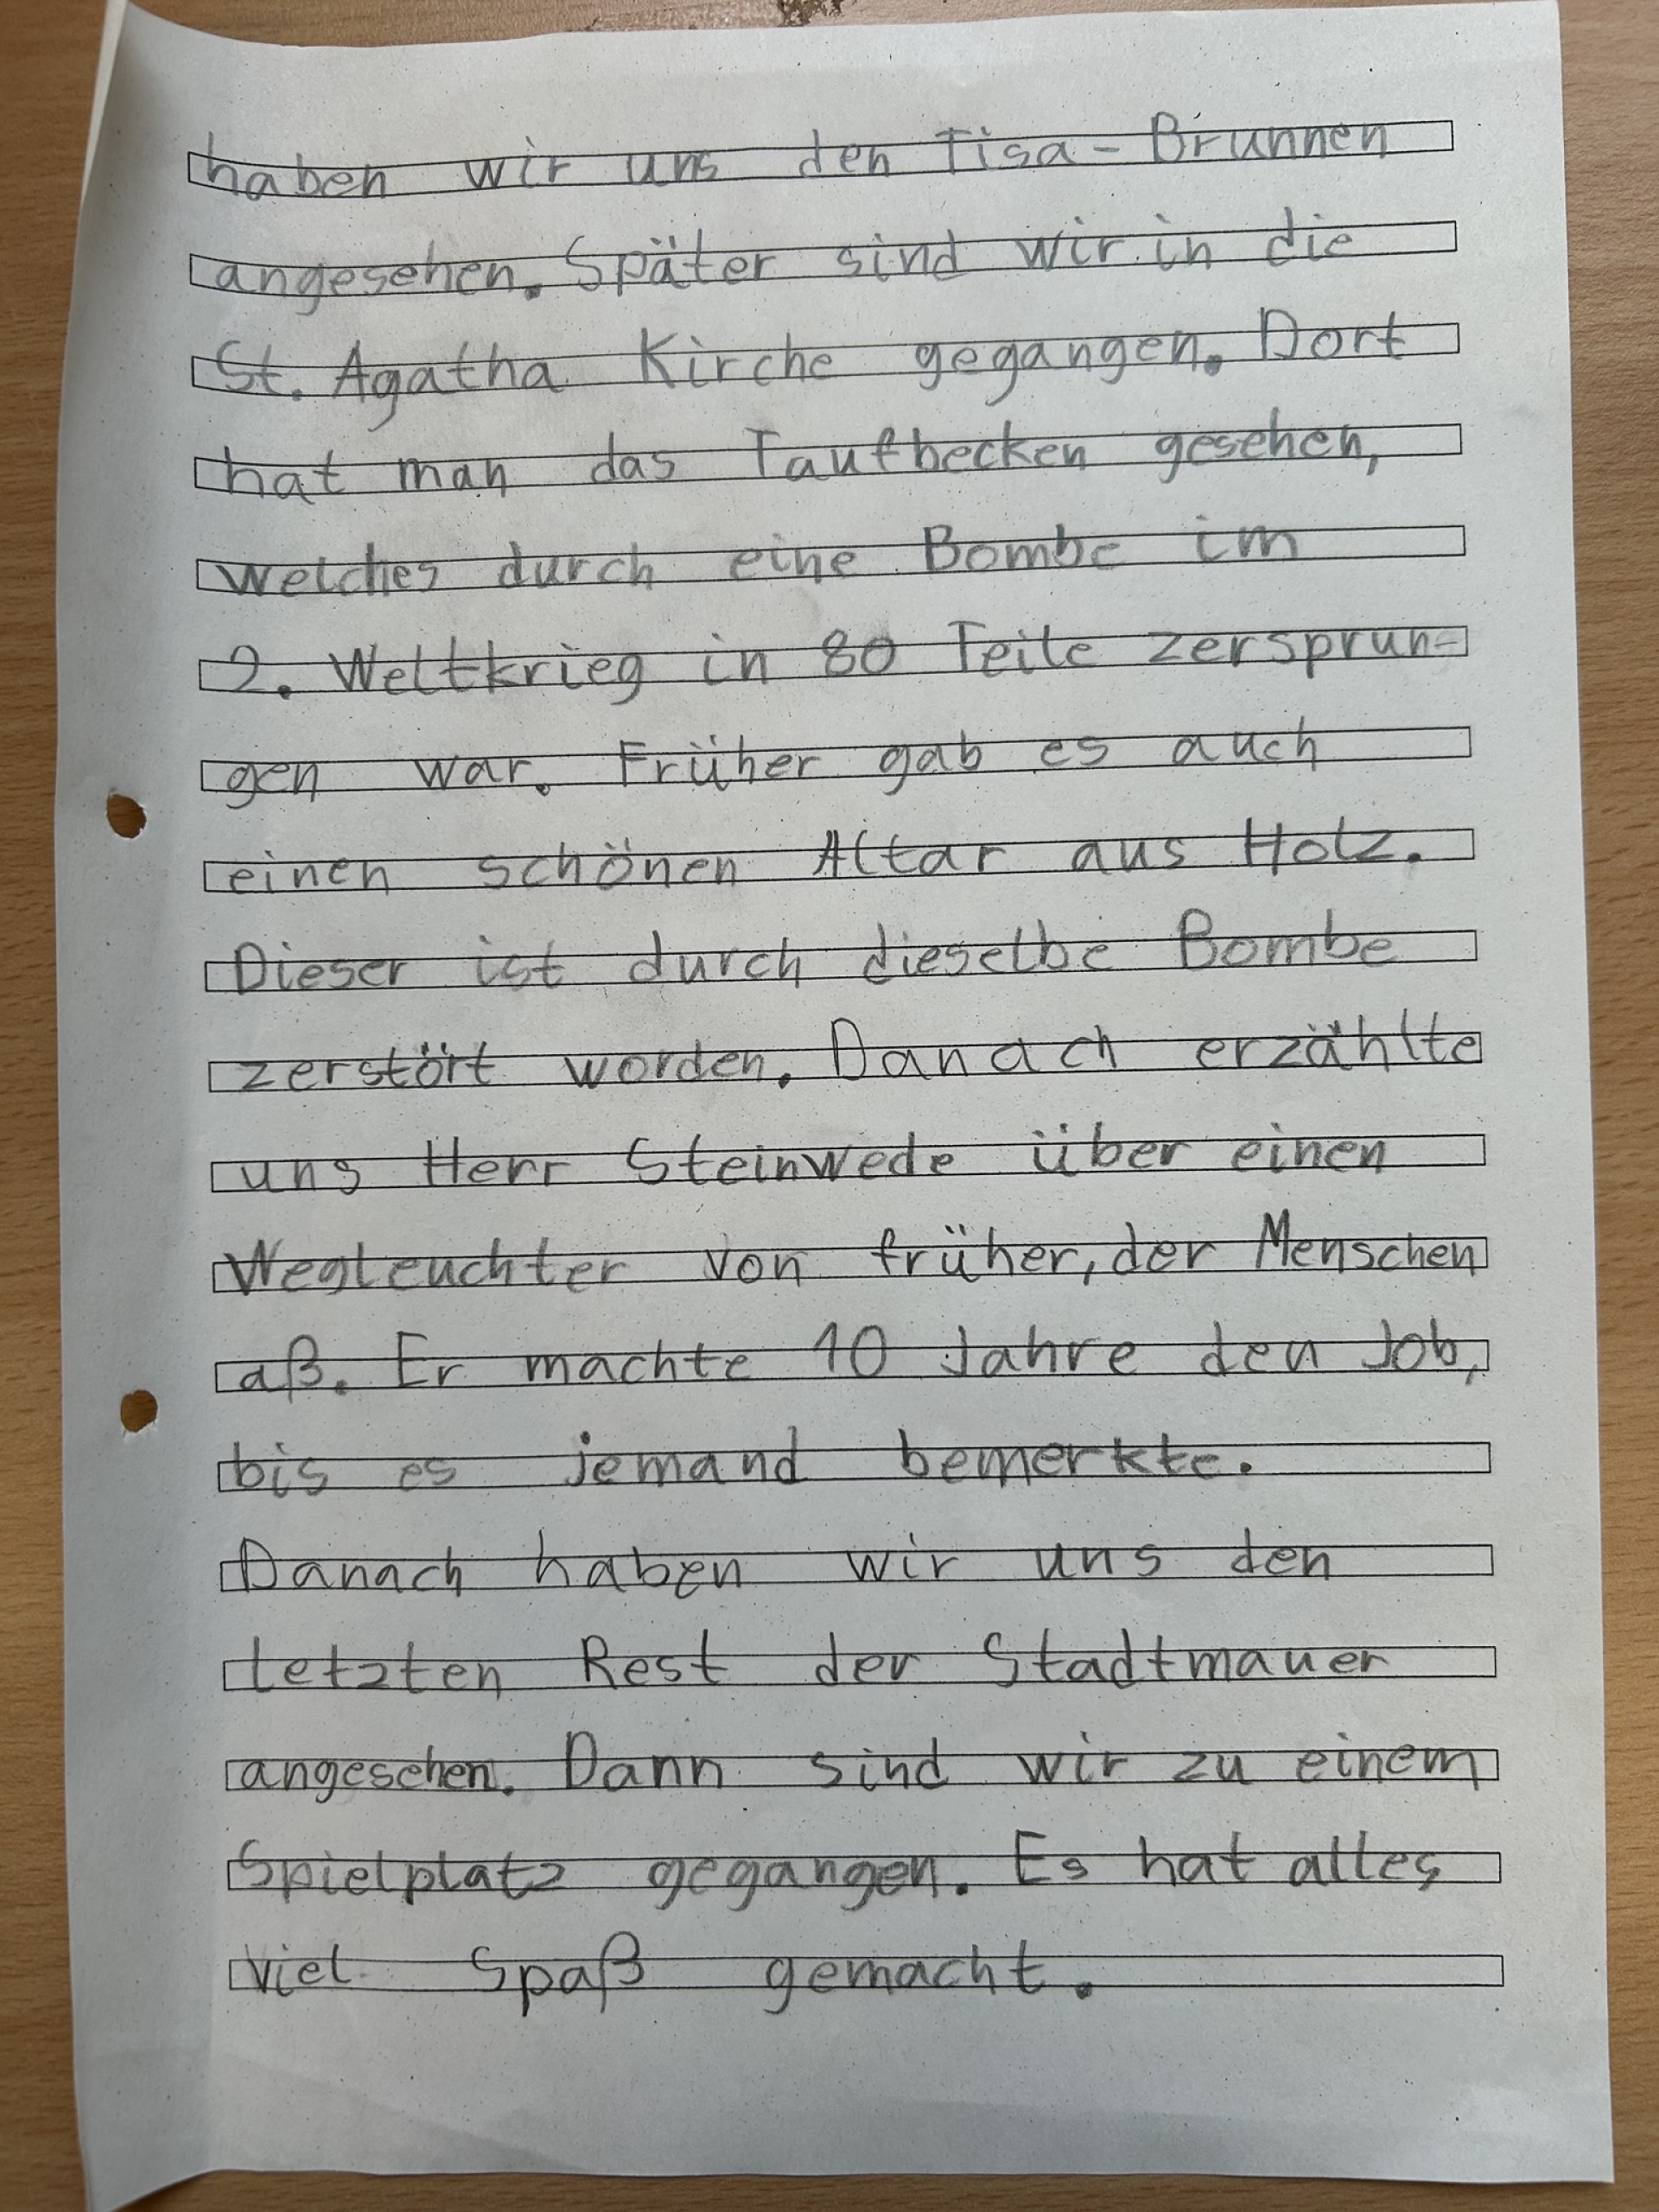 haben wir uns den Tisa-Brunnen
angesehen. Später sind wir in die
St. Agatha Kirche gegangen. Dort
hat man das Taufbecken gesehen,
welches durch eine Bombe im
2. Weltkrieg in 80 Teile zersprun-
gen war. Früher gab es auch
einen schönen Altar aus Holz.
Dieser ist durch dieselbe Bombe
zerstört worden. Danach erzählte
uns Herr Steinwede über einen
Wegleuchter von früher, der Menschen
aß. Er machte 10 Jahre den Job,
bis es jemand bemerkte.
Danach haben wir uns den
letzten Rest der Stadtmauer
angesehen. Dann sind wir zu einem
Spielplatz gegangen. Es hat alles
viel Spaß gemacht.